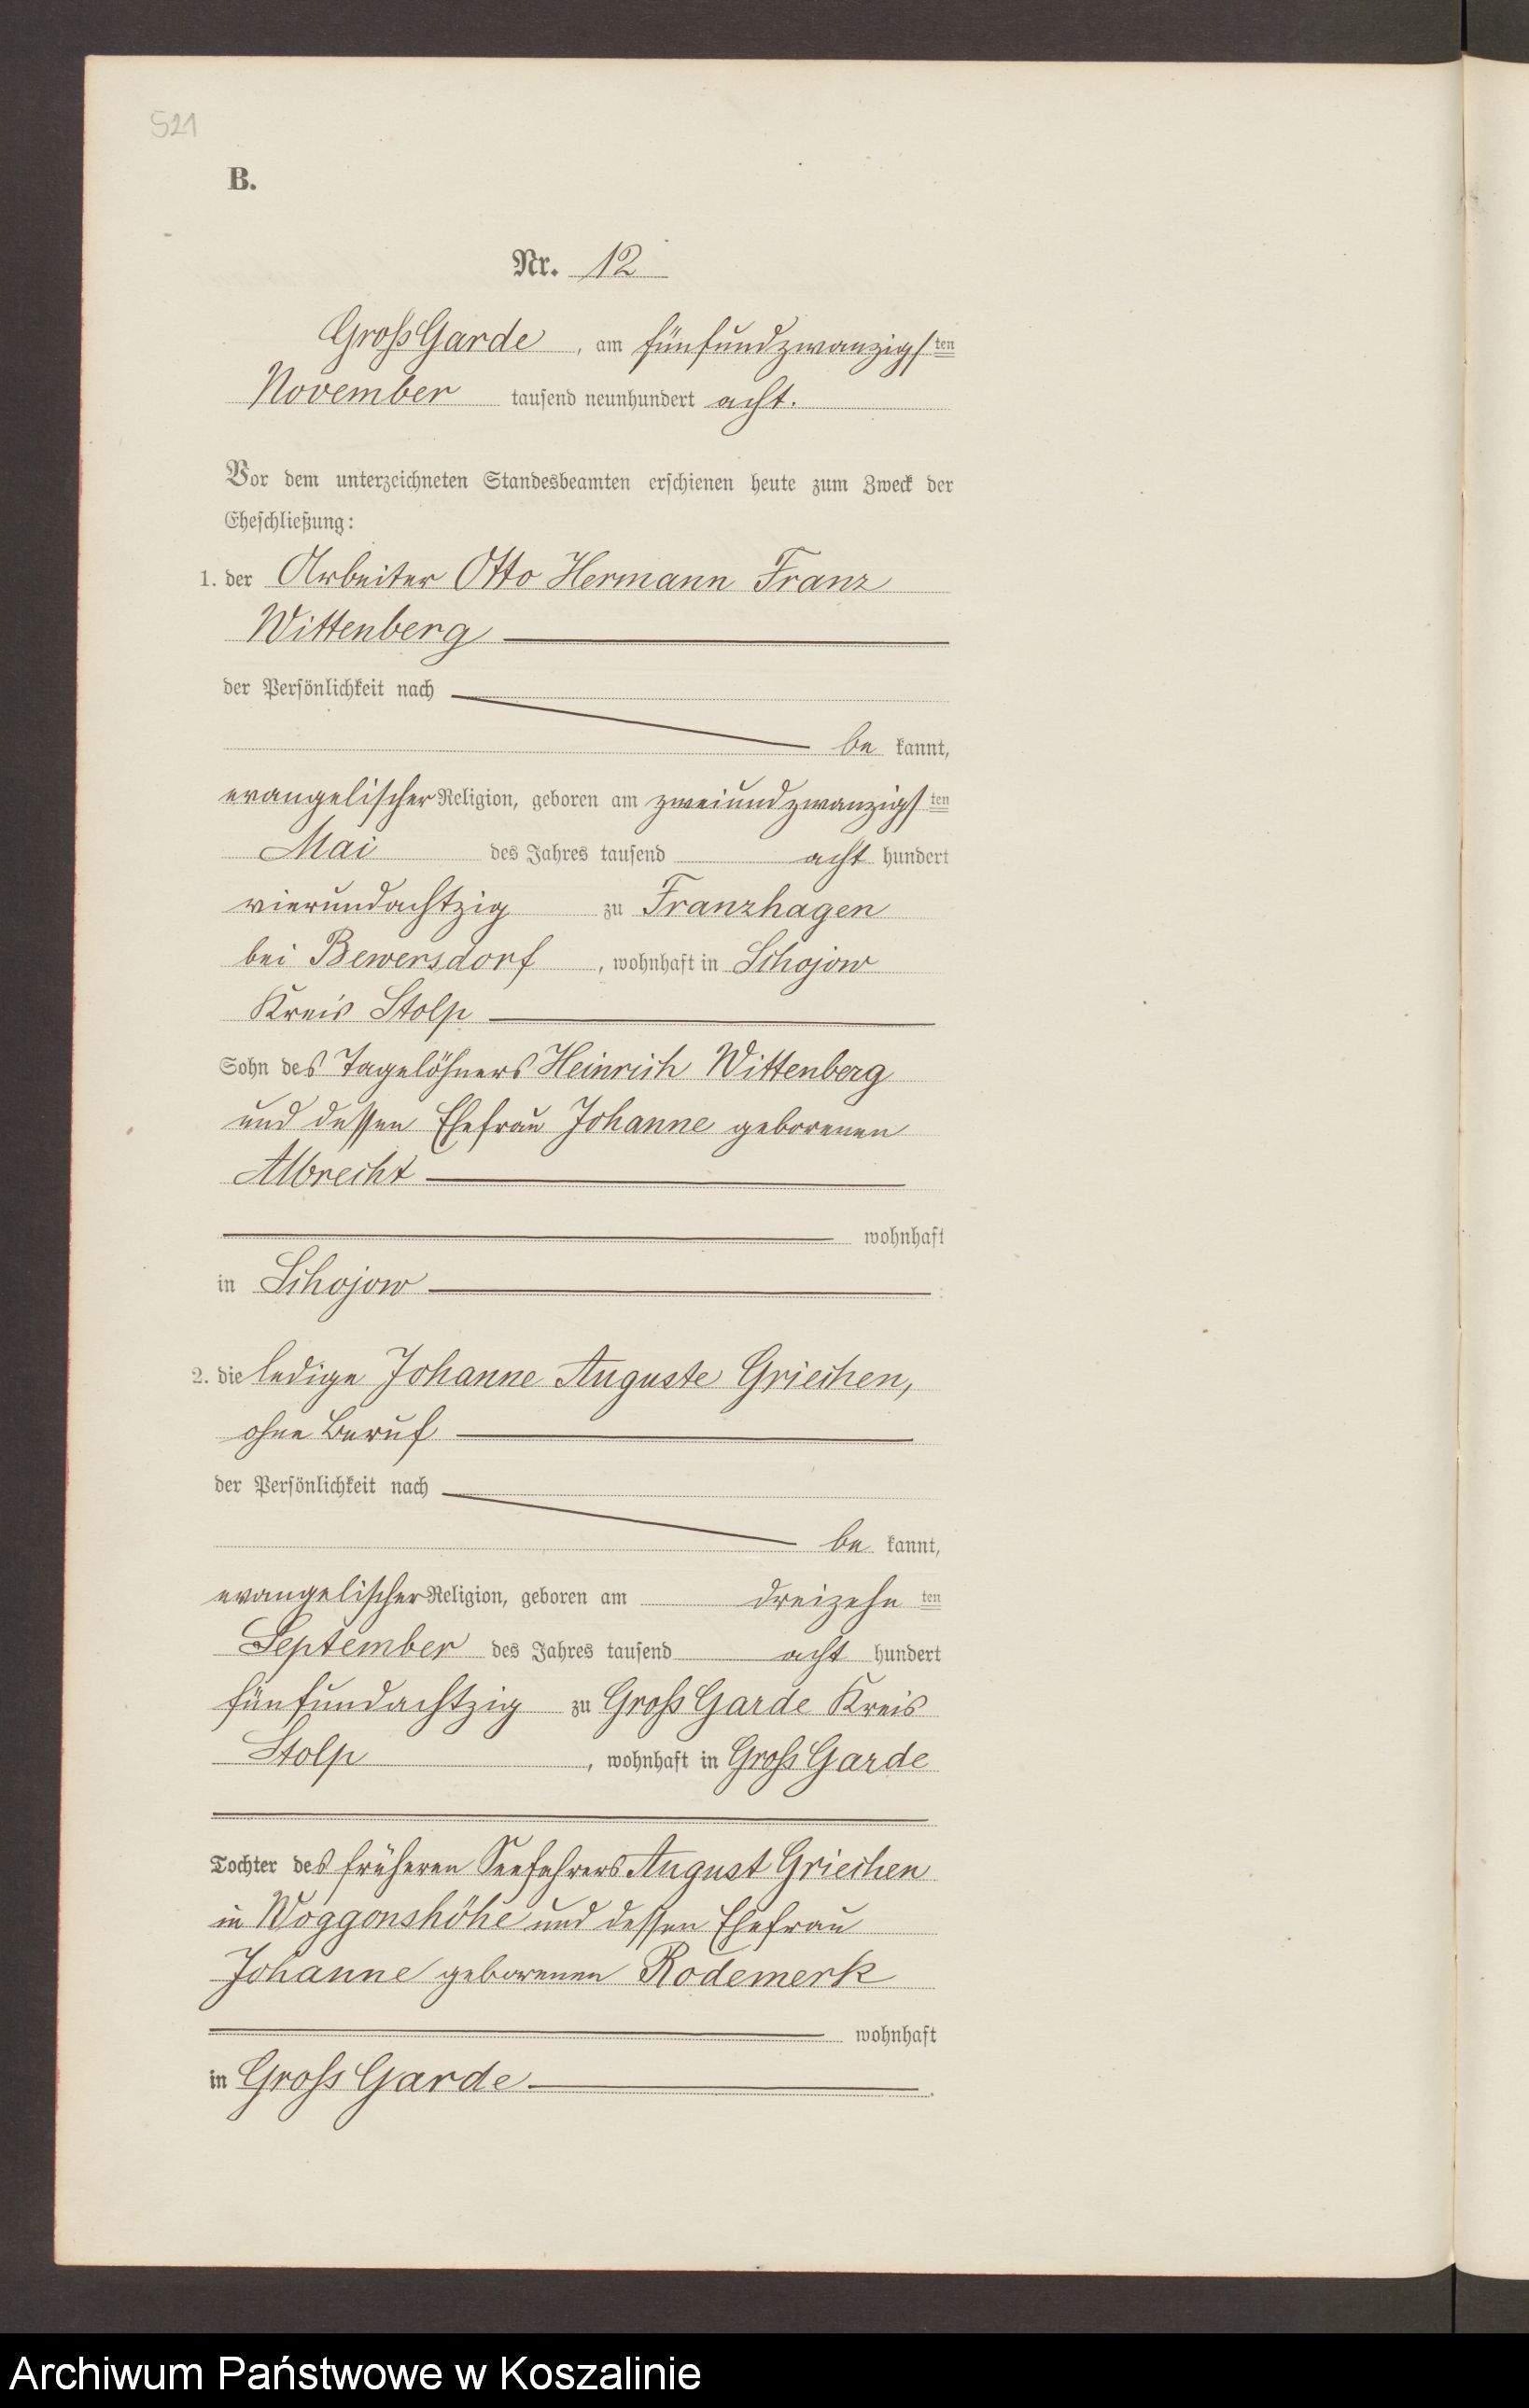 521
B.
Nr. 12
Groß Garde, am fünfundzwanzigsten
November tausend neunhundert acht.
Vor dem unterzeichneten Standesbeamten erschienen heute zum Zweck der
Eheschließung:
1. der Arbeiter Otto Hermann Franz
Wittenberg
der Persönlichkeit nach
be kannt,
evangelischer Religion, geboren am zweiundzwanzigsten
Mai des Jahres tausend acht hundert
vierundachtzig zu Franzhagen
bei Bewersdorf, wohnhaft in Schojow
Kreis Stolp
Sohn des Tagelöhners Heinrich Wittenberg
und dessen Ehefrau Johanne geborenen
Albrecht
wohnhaft
in Schojow
2. die ledige Johanne Auguste Griechen,
ohne Beruf
der Persönlichkeit nach
be kannt,
evangelischer Religion, geboren am dreizehnten
September des Jahres tausend acht hundert
fünfundachtzig zu Groß Garde Kreis
Stolp, wohnhaft in Groß Garde
Tochter des früheren Seefahrers August Griechen
in Woggonshöhe und dessen Ehefrau
Johanne geborenen Rodemerk
wohnhaft
in Groß Garde.
Archiwum Państwowe w Koszalinie